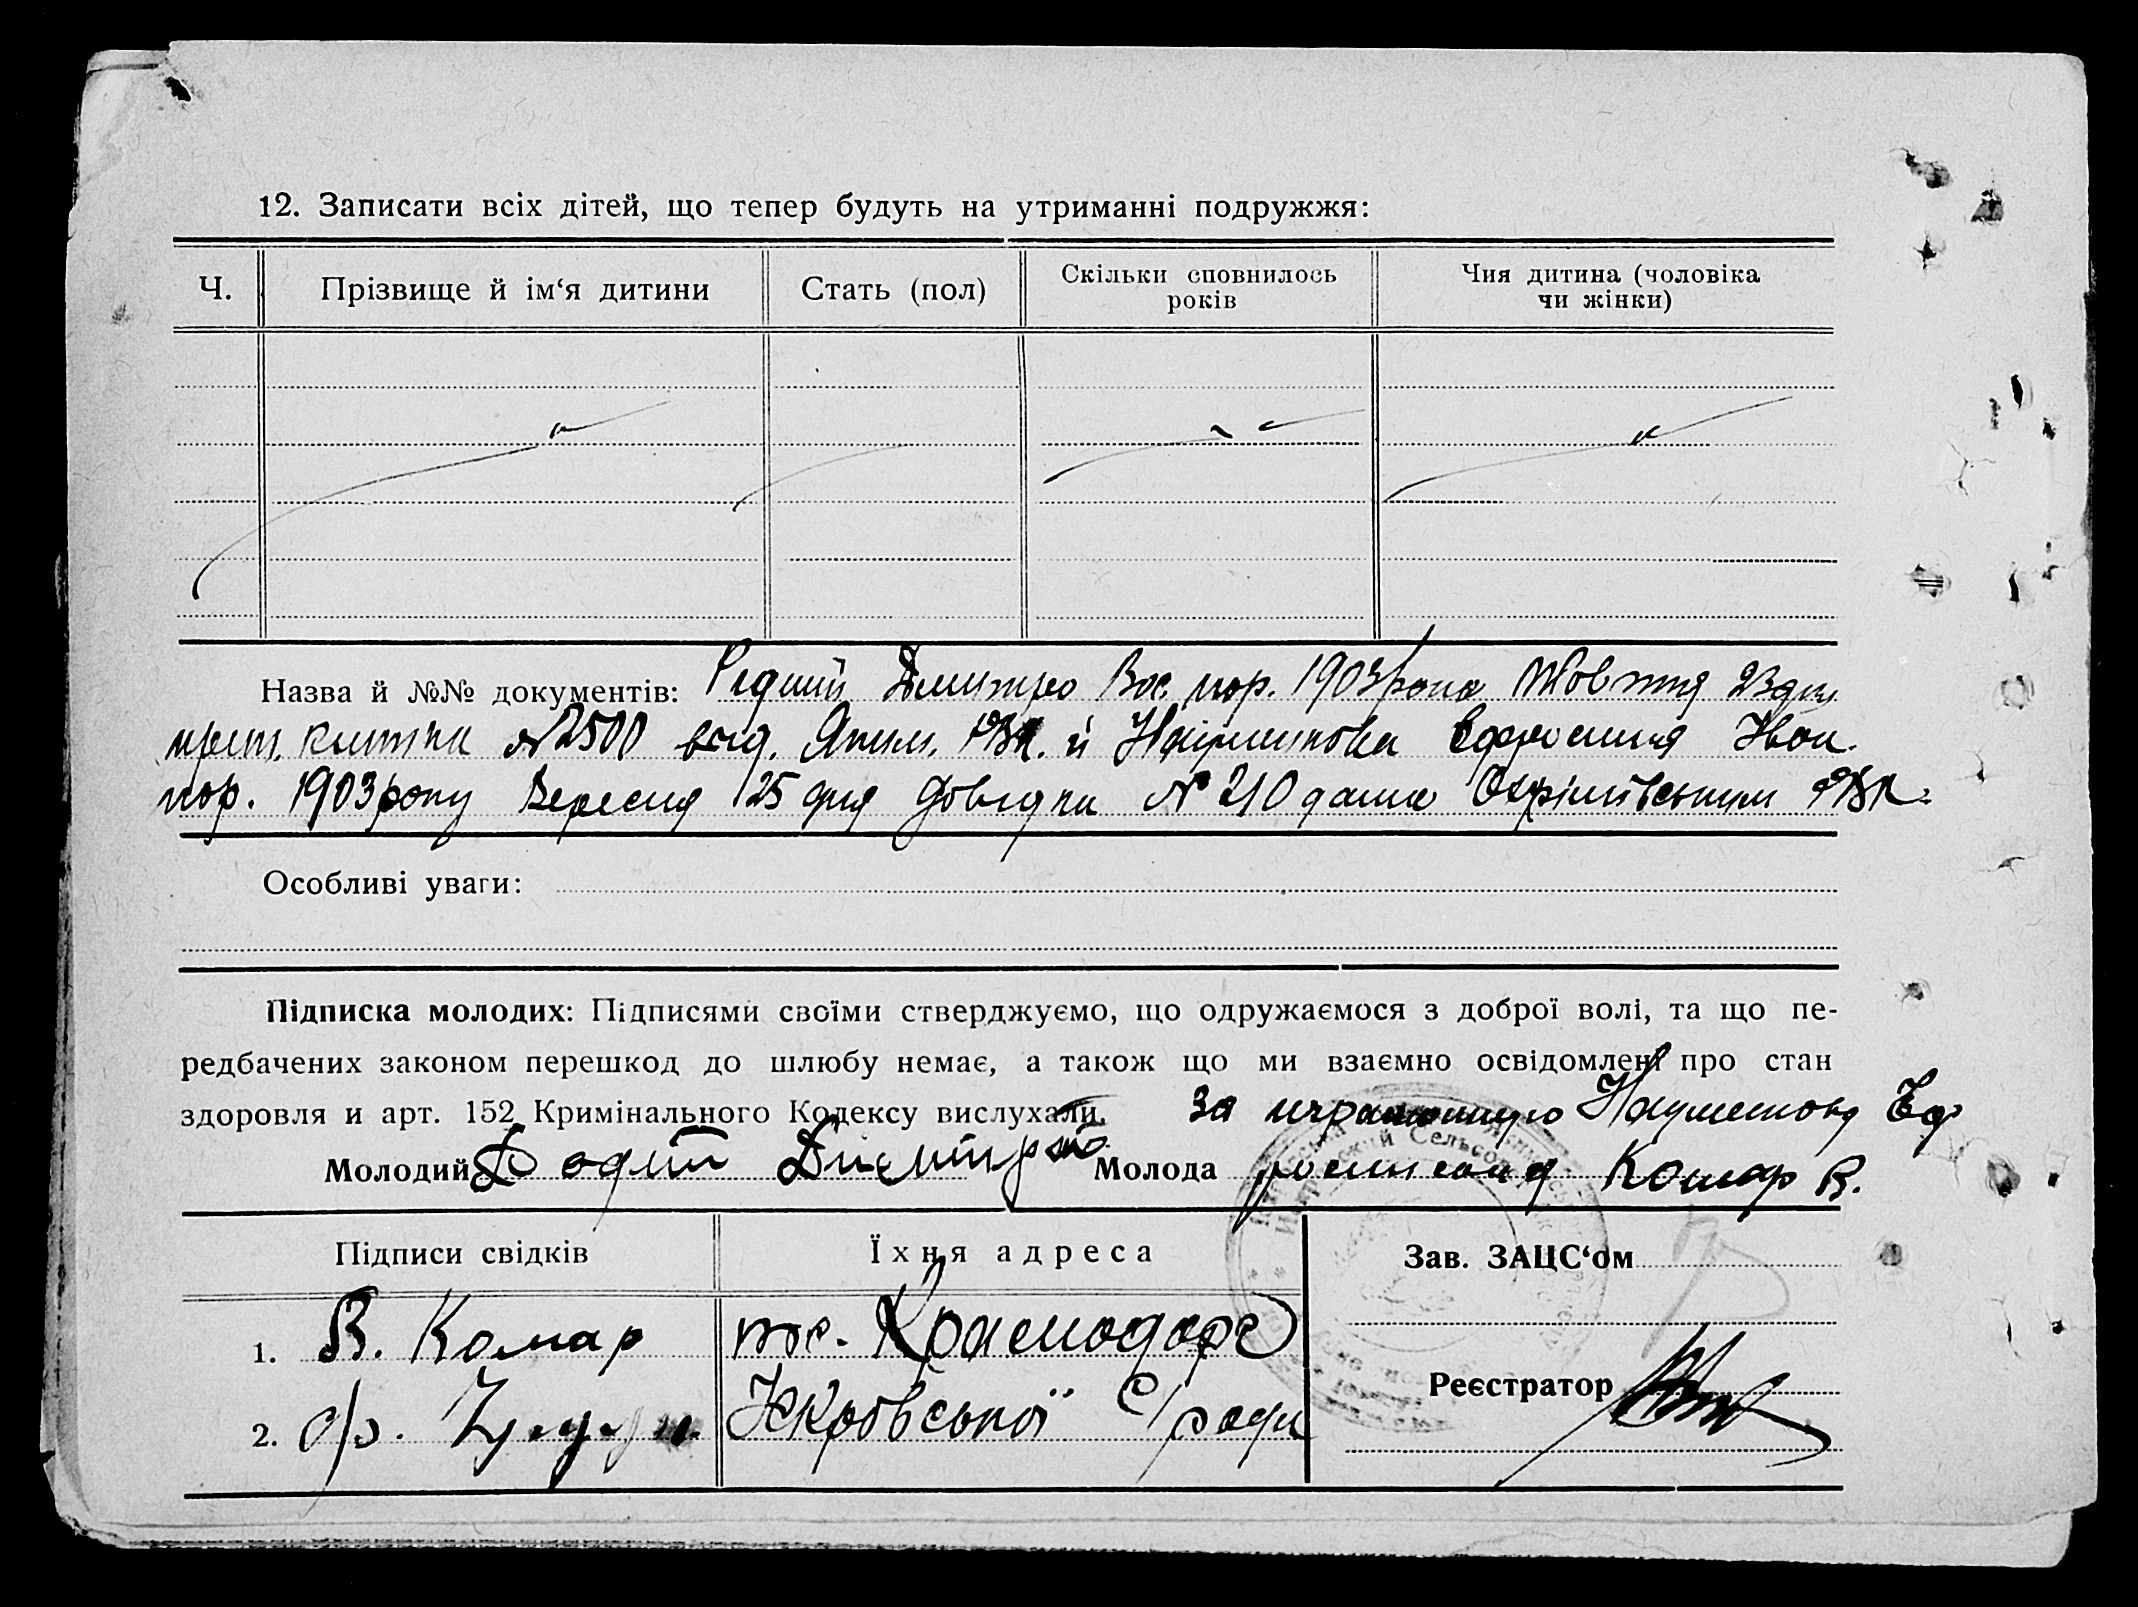 12. Записати всіх дітей, що тепер будуть на утриманні подружжя:
Ч. Прізвище й ім‘я дитини Стать (пол) Скільки сповнилось років Чия дитина (чоловіка чи жінки)
Назва й №№ документів: Рідний Дмитро Вас. нар. 1903 рока Жовтня 23 дня
квитка №2500 вид. Яким. РВК. й Наументова Ефросиния Иван.
нар. 1903 року Вересня 25 дня Довідка № 210 дана Охрімівським РВК.
Особливі уваги:
Підписка молодих: Підписями своїми стверджуємо, що одружаємося з доброї волі, та що пе-
редбачених законом перешкод до шлюбу немає, а також що ми взаємно освідомлені про стан
здоровля и арт. 152 Кримінального Кодексу вислухали. За неграмотную Наументову Еф
Молодий Дмитро Молода росписался Комар В.
Підписи свідків Їхня адреса Зав. ЗАЦС‘ом
1. В. Комар пос. Краснодарс
2. С/ради
Реєстратор